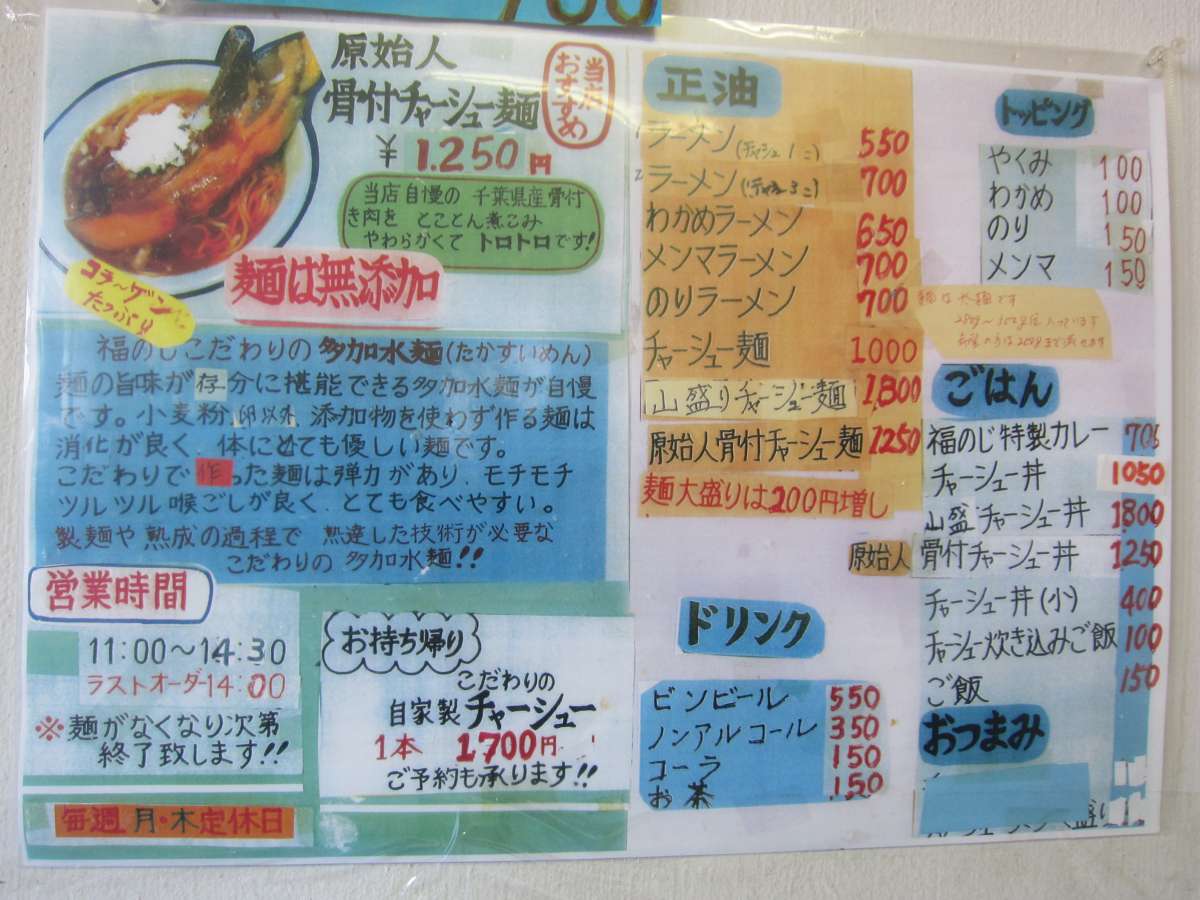 700
原始人
骨付チャーシュー麺
当店おすすめ
¥1.250円
当店自慢の 千葉県産骨付
き肉を とことん煮こみ
やわらかくて トロトロです!
コラーゲン
たっぷり
麺は無添加
福のじこだわりの 多加水麺(たかすいめん)
麺の旨味が存分に堪能できる多加水麺が自慢
です。小麦粉 卵以外 添加物を使わず作る麺は
消化が良く、体にとても優しい麺です。
こだわりで作った麺は弾力があり、モチモチ
ツルツル喉ごしが良く、とても食べやすい。
製麺や熟成の過程で 熟達した技術が必要な
こだわりの 多加水麺!!
営業時間
11:00〜14:30
ラストオーダー14:00
※麺がなくなり次第
終了致します!!
毎週月・木定休日
お持ち帰り
こだわりの
自家製 チャーシュー
1本 1,700円
ご予約も承ります!!
正油
ラーメン(チャーシュー1こ) 550
ラーメン(チャーシュー3こ) 700
わかめラーメン 650
メンマラーメン 700
のりラーメン 700
チャーシュー麺 1000
山盛りチャーシュー麺 1,800
原始人骨付チャーシュー麺 1250
麺大盛りは200円増し
ドリンク
ビンビール 550
ノンアルコール 350
コーラ 150
お茶 150
トッピング
やくみ 100
わかめ 100
のり 150
メンマ 150
ごはん
福のじ特製カレー 700
チャーシュー丼 1050
山盛チャーシュー丼 1800
原始人 骨付チャーシュー丼 1250
チャーシュー丼(小) 400
チャーシュー炊き込みご飯 100
ご飯 150
おつまみ